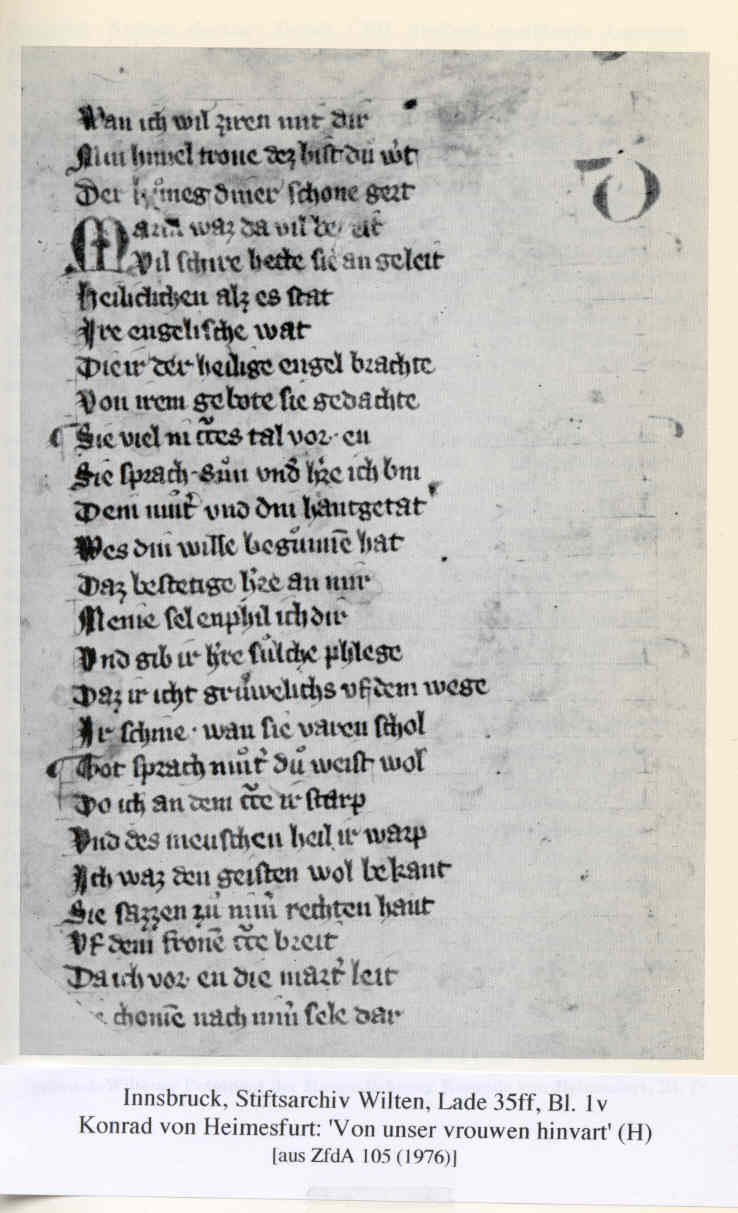 Wan ich wil ziren mit dir
Min himel trone dez bist du w't
Der kůneg diner schone gert
Maria waz da vil bereit
Vil schire hette sie an geleit
Heilichchen alz es stat
Ire engelische wat
Die ir der heilige engel brachte
Von irem gebote sie gedachte
Sie viel ni tal vor en
Sie sprach sůn vnd h're ich bin
Dein můt' vnd din hantgetat
Wes din wille begůnnē hat
Daz bestetige h're an mir
Meine sel enphil ich dir
Vnd gib ir h're sůlche phlege
Daz ir icht grůwelichs vf dem wege
Ir schine · wan sie varen schol
Got sprach můt' dů weist wol
Do ich an dem ir starp
Vnd des menschen heil ir warp
Ich waz den geisten wol bekant
Sie sazzen zů min' rechten hant
Vf dem fronē breit
Da ich vor en die mart' leit
chomē nach min' sele dar
Innsbruck, Stiftsarchiv Wilten, Lade 35ff, Bl. 1v
Konrad von Heimesfurt: 'Von unser vrouwen hinvart' (H)
[aus ZfdA 105 (1976)]